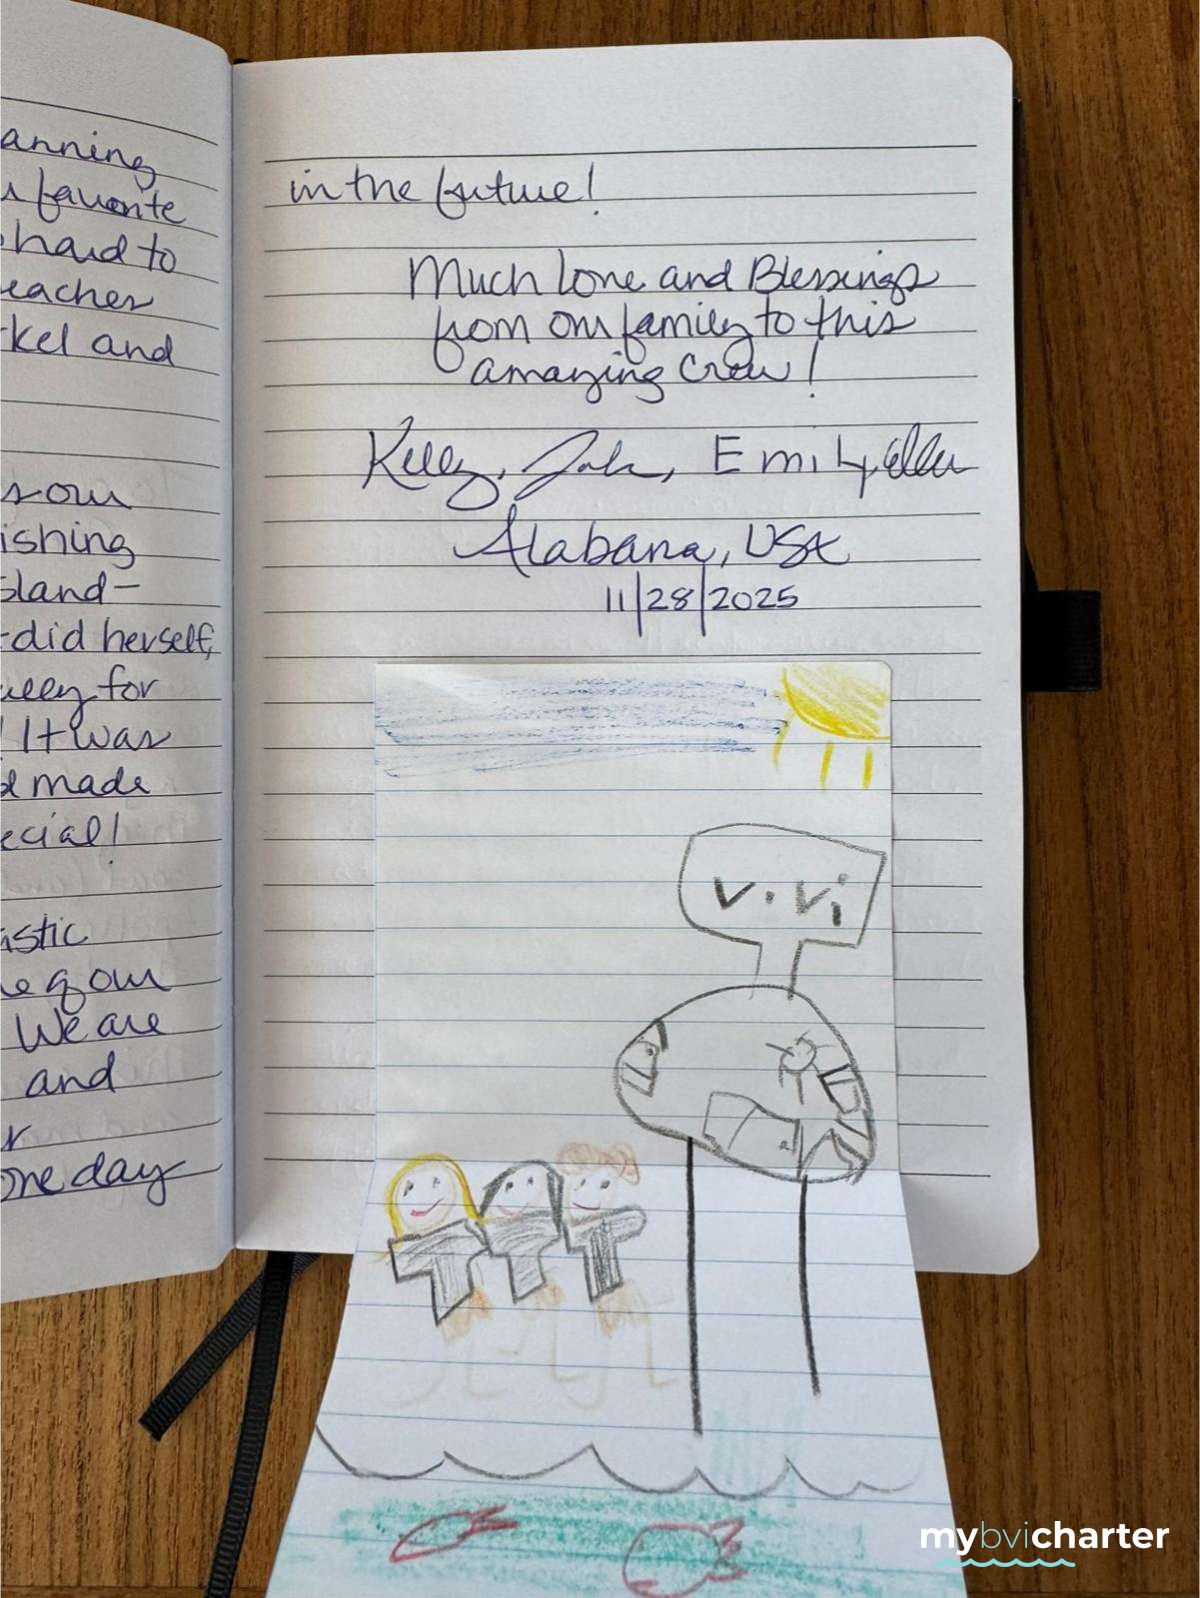 anning
favorite
hard to
eaches
kel and
s our
ishing
sland-
did herself,
for
! It was
made
ecial!
astic
e of our
We are
and
r
one day
in the future!
Much love and Blessings
from our family to this
amazing crew!
Kelly, Jake, Emily, Ellen
Alabama, USA
11/28/2025
V.Vi
mybvicharter